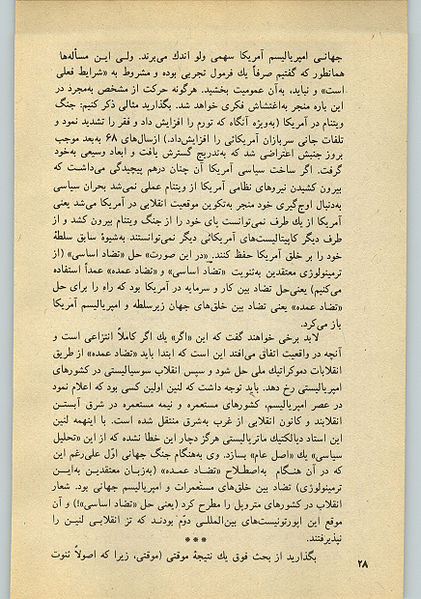 جهانی امپریالیسم آمریکا سهمی ولو اندك می‌برند. ولی این مسأله‌ها
همانطور که گفتیم صرفاً یك فرمول تجربی بوده و مشروط به «شرایط فعلی
است» و نباید، به‌آن عمومیت بخشید. هرگونه حرکت از مشخص به‌مجرد در
این باره منجر به‌اغتشاش فکری خواهد شد. بگذارید مثالی ذکر کنیم: جنگ
ویتنام در آمریکا (به‌ویژه آنگاه که تورم را افزایش داد و فقر را تشدید نمود و
تلفات جانی سربازان آمریکائی را افزایش‌داد.) ازسال‌های ۶۸ به‌بعد موجب
بروز جنبش اعتراضی شد که به‌تدریج گسترش یافت و ابعاد وسیعی به‌خود
گرفت. اگر ساخت سیاسی آمریکا آن چنان درهم پیچیدگی می‌داشت که
بیرون کشیدن نیروهای نظامی آمریکا از ویتنام عملی نمی‌شد بحران سیاسی
به‌دنبال اوج‌گیری خود منجر به‌تکوین موقعیت انقلابی در آمریکا می‌شد یعنی
آمریکا از یك طرف نمی‌توانست پای خود را از جنگ ویتنام بیرون کشد و از
طرف دیگر کاپیتالیست‌های آمریکائی دیگر نمی‌توانستند به‌شیوهٔ سابق سلطهٔ
خود را بر خلق آمریکا حفظ کنند. «در این صورت» حل «تضاد اساسی» (از
ترمینولوژی معتقدین به‌ثنویت «تضاد اساسی» و «تضاد عمده» عمداً استفاده
می‌کنیم) یعنی‌حل تضاد بین کار و سرمایه در آمریکا بود که راه را برای حل
«تضاد عمده» یعنی تضاد بین خلق‌های جهان زیرسلطه و امپریالیسم آمریکا
باز می‌کرد.
لابد برخی خواهند گفت که این «اگر» یك اگر کاملاً انتزاعی است و
آنچه در واقعیت اتفاق می‌افتد این است که ابتدا باید «تضاد عمده» از طریق
انقلابات دموکراتیك ملی حل شود و سپس انقلاب سوسیالیستی در کشورهای
امپریالیستی رخ دهد. باید توجه داشت که لنین اولین کسی بود که اعلام نمود
در عصر امپریالیسم، کشورهای مستعمره و نیمه مستعمره در شرق آبستن
انقلابند و کانون انقلابی از غرب به‌شرق منتقل شده است. با اینهمه لنین
این استاد دیالکتیك ماتریالیستی هرگز دچار این خطا نشده که از این «تحلیل
سیاسی» یك «اصل عام» بسازد. وی به‌هنگام جنگ جهانی اول علی‌رغم این
که در آن هنگام به‌اصطلاح «تضاد عمده» (به‌زبان معتقدین به‌این
ترمینولوژی) تضاد بین خلق‌های مستعمرات و امپریالیسم جهانی بود، شعار
انقلاب در کشورهای متروپل را مطرح کرد (یعنی حل «تضاد اساسی»!) و آن
موقع این اپورتونیست‌های بین‌المللی دوّم بودند که تز انقلابی لنین را
نپذیرفتند.
***
بگذارید از بحث فوق یك نتیجهٔ موقتی (موقتی، زیرا که اصولاً ثنوت
۲۸